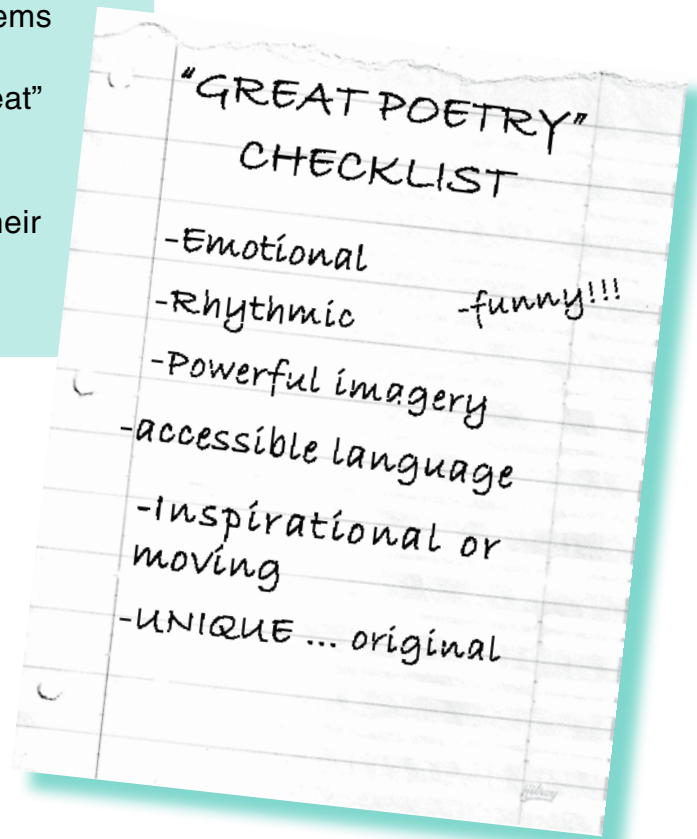 ems
eat”
heir
"GREAT POETRY"
CHECKLIST
-Emotional
-Rhythmic
-funny!!!
-Powerful imagery
-accessible language
-Inspirational or
moving
-UNIQUE ... original
Hilroy